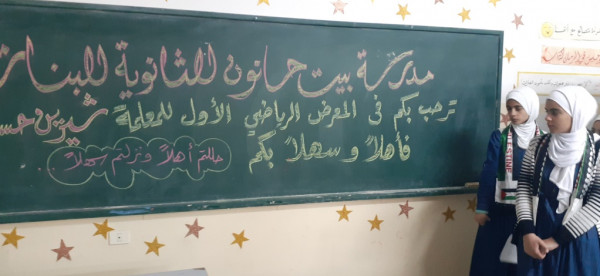 مدرسة بيت حانون الثانوية للبنات
ترحب بكم في المعرض الرياضي الأول للمعلمة شيرين
فأهلاً وسهلاً بكم
حللتم أهلاً ونزلتم سهلاً